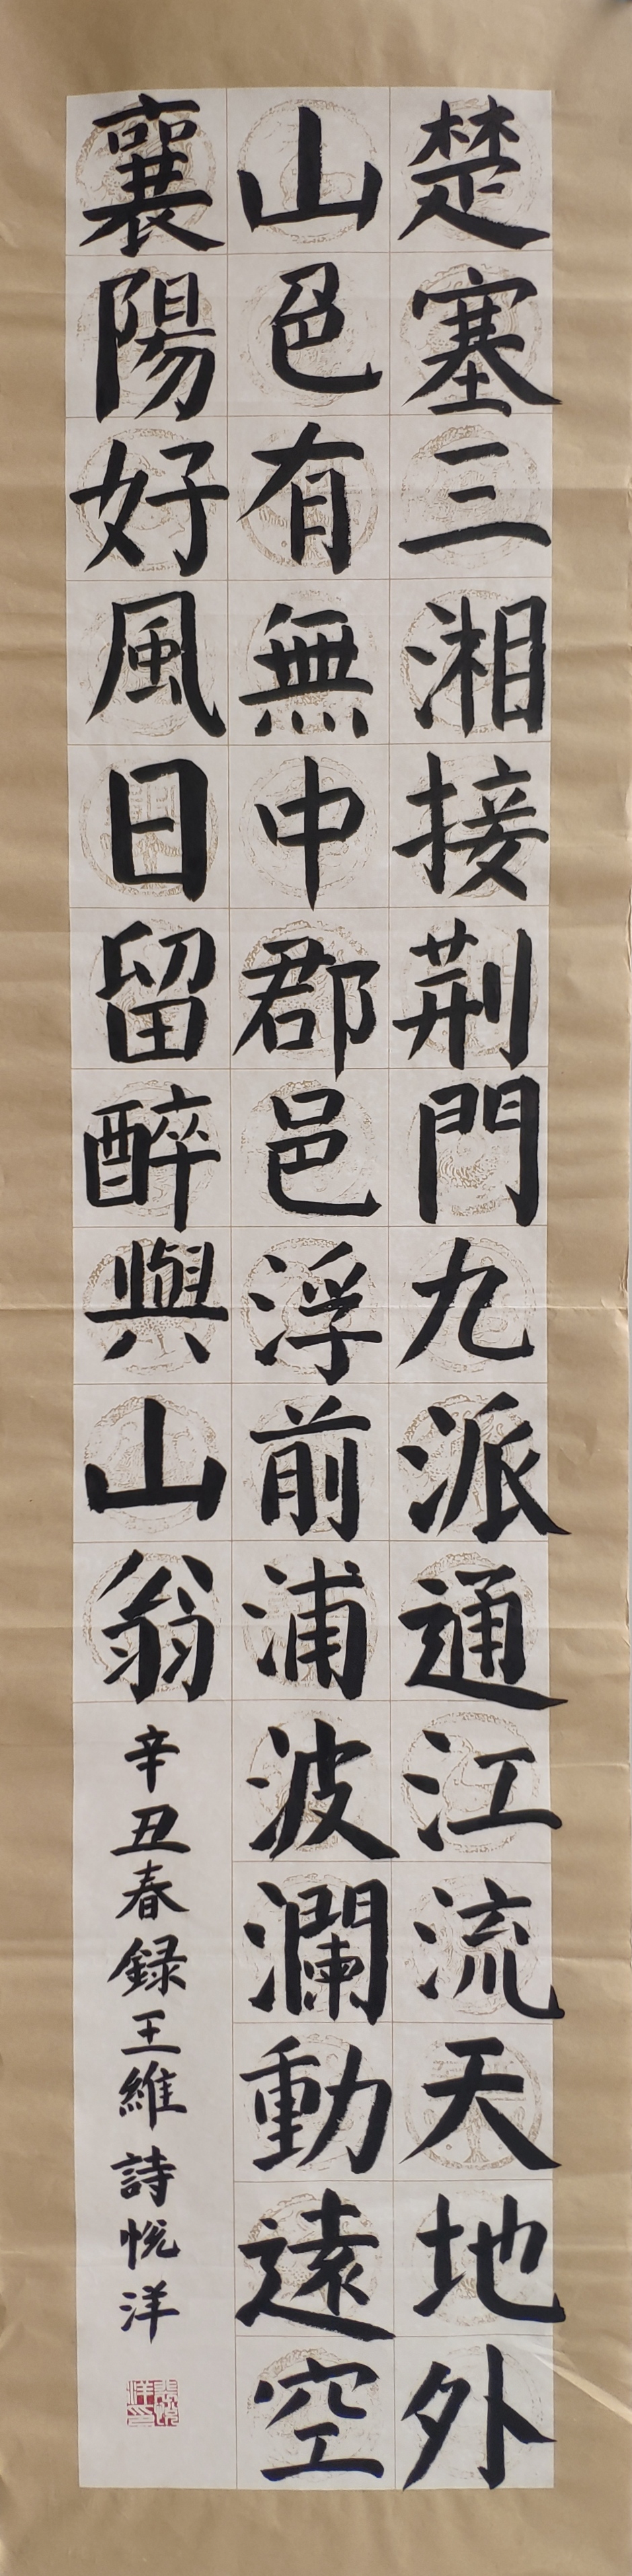 楚塞三湘接荆門九派通江流天地外
山色有無中郡邑浮前浦波瀾動遠空
襄陽好風日留醉與山翁
辛丑春録王維詩悦洋